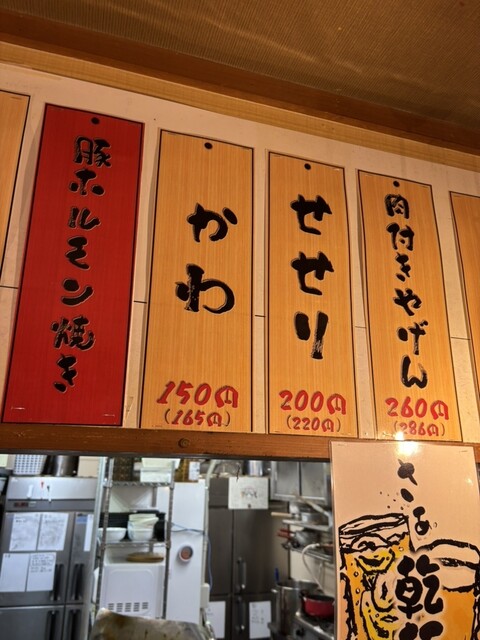 豚ホルモン焼き
かわ
150円
(165円)
せせり
200円
(220円)
肉付きやげん
260円
(286円)
さぁ
乾